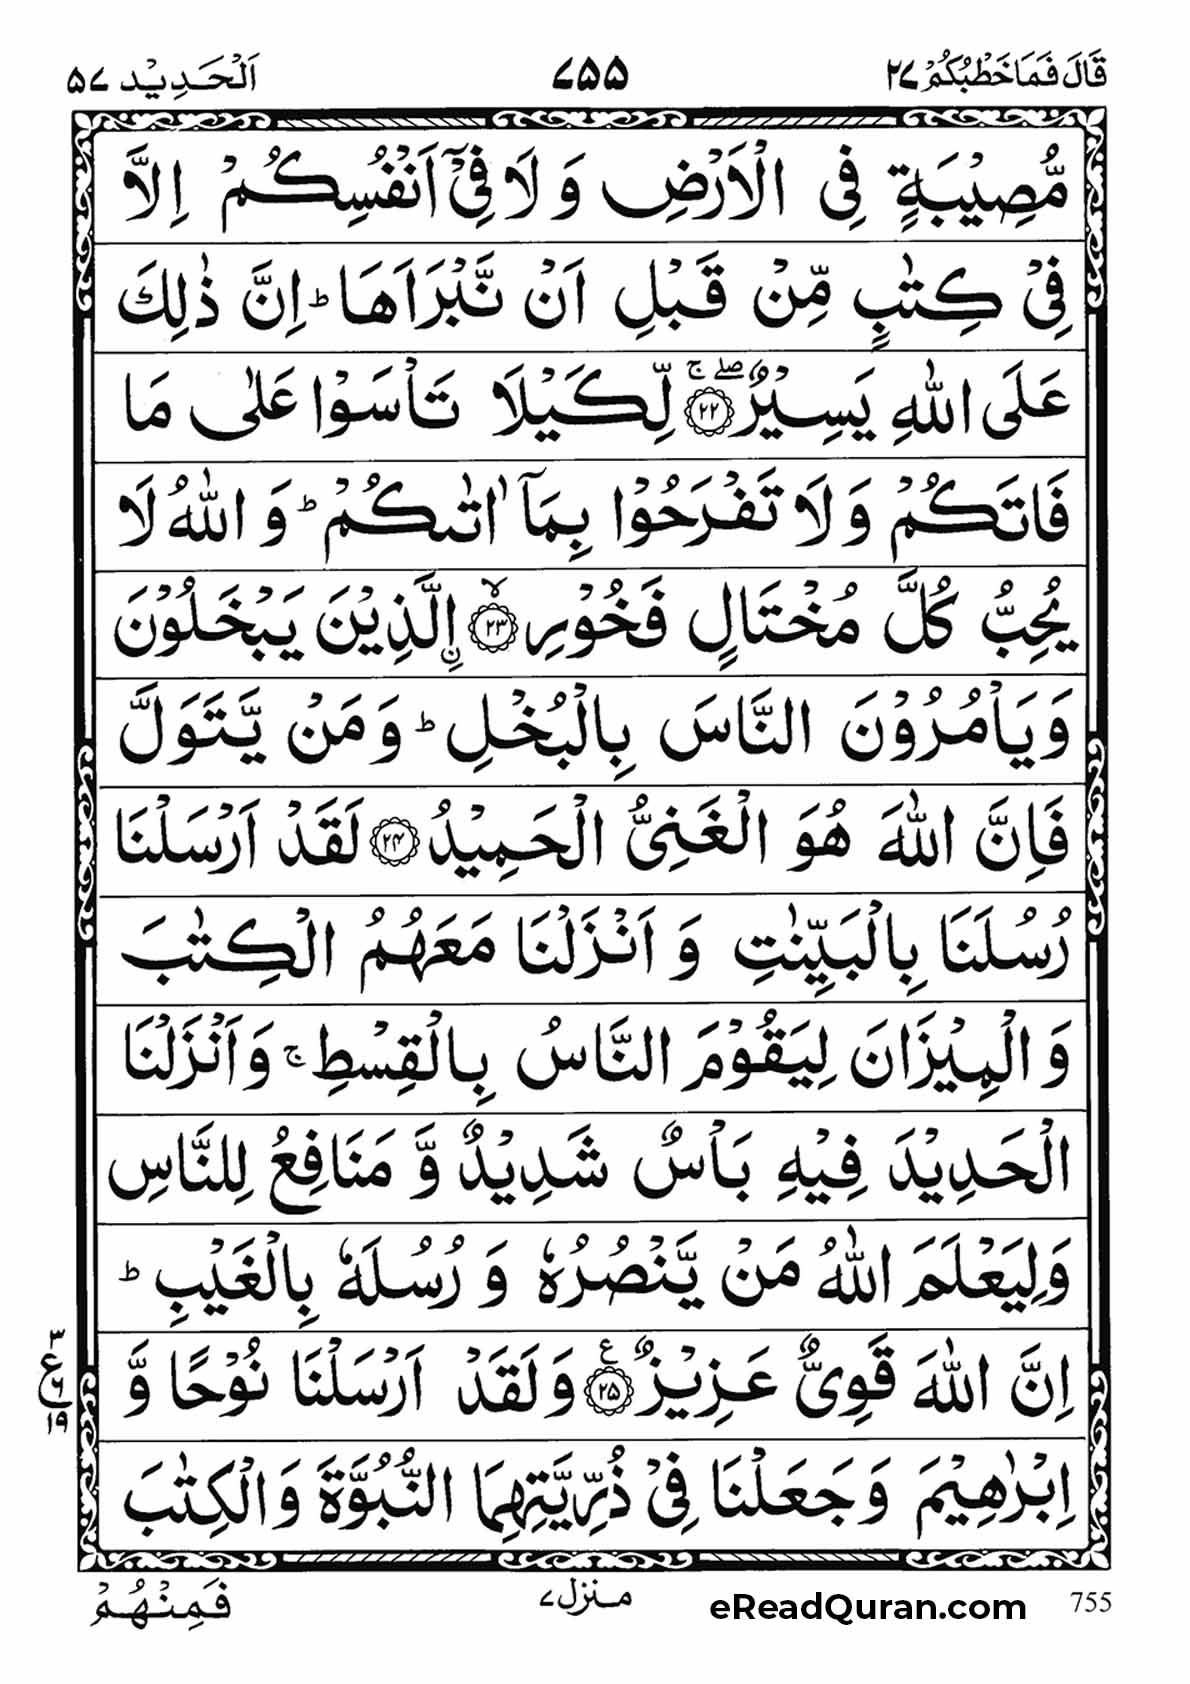 قَالَ فَمَا خَطْبُكُمْ ۲۷ ۷۵۵ اَلْحَدِيْد ۵۷
مُّصِيْبَةٍ فِى الْاَرْضِ وَ لَا فِىْۤ اَنْفُسِكُمْ اِلَّا
فِىْ كِتٰبٍ مِّنْ قَبْلِ اَنْ نَّبْرَاَهَا ؕ اِنَّ ذٰلِكَ
عَلَى اللّٰهِ يَسِيْرٌ ۖۚ ﴿۲۲﴾ لِّكَيْلَا تَاْسَوْا عَلٰى مَا
فَاتَكُمْ وَ لَا تَفْرَحُوْا بِمَاۤ اٰتٰىكُمْ ؕ وَ اللّٰهُ لَا
يُحِبُّ كُلَّ مُخْتَالٍ فَخُوْرِ ۙ ﴿۲۳﴾ ۟اِ۬لَّذِيْنَ يَبْخَلُوْنَ
وَيَاْمُرُوْنَ النَّاسَ بِالْبُخْلِ ؕ وَ مَنْ يَّتَوَلَّ
فَاِنَّ اللّٰهَ هُوَ الْغَنِىُّ الْحَمِيْدُ ﴿۲۴﴾ لَقَدْ اَرْسَلْنَا
رُسُلَنَا بِالْبَيِّنٰتِ وَ اَنْزَلْنَا مَعَهُمُ الْكِتٰبَ
وَ الْمِيْزَانَ لِيَقُوْمَ النَّاسُ بِالْقِسْطِ ۚ وَ اَنْزَلْنَا
الْحَدِيْدَ فِيْهِ بَاْسٌ شَدِيْدٌ وَّ مَنَافِعُ لِلنَّاسِ
وَلِيَعْلَمَ اللّٰهُ مَنْ يَّنْصُرُهٗ وَ رُسُلَهٗ بِالْغَيْبِ ؕ
اِنَّ اللّٰهَ قَوِىٌّ عَزِيْزٌ ﴿۲۵﴾ ع وَلَقَدْ اَرْسَلْنَا نُوْحًا وَّ
۳ ع ۶ ۱۹
اِبْرٰهِيْمَ وَجَعَلْنَا فِىْ ذُرِّيَّتِهِمَا النُّبُوَّةَ وَالْكِتٰبَ
فَمِنْهُمْ منزل ۷ eReadQuran.com 755